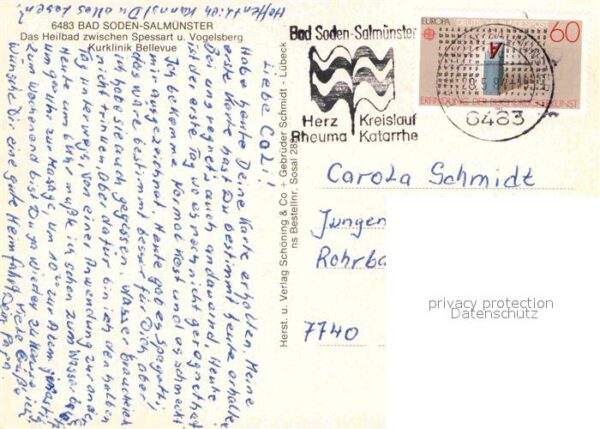 Hoffentlich kannst Du alles lesen?
6483 BAD SODEN-SALMÜNSTER
Das Heilbad zwischen Spessart u. Vogelsberg
Kurklinik Bellevue
Liebe Coli!
Habe heute Deine Karte erhalten. Meine
erste Karte hast Du bestimmt heute erhalten.
Bei uns regnet's auch andauernd. Heute
ist der erste Tag wo es noch nicht geregnet hat.
Ich bekomme normal Kost und es schmeckt
mir ausgezeichnet. Heute gab es Spagetti,
das wäre bestimmt besser für Dich, aber
ich habe sie auch gegessen. Wasser brauche ich
nicht trinken. Aber dafür bin ich den halben
Tag unterwegs, von einer Anwendung zur andern.
Heute um 6 Uhr mußte ich schon zum Wasser
um zur Massage, um 10 zur Atem gymnastik
zum Wochenend bist Du ja wieder zu Hause. Ich
Wünsche Dir eine gute Heimfahrt. Viele Grüße
Dein Papa.
Herst. u. Verlag Schöning & Co + Gebrüder Schmidt - Lübeck
ns Bestellnr. Sosal 28
Bad Soden-Salmünster
Herz Kreislauf
Rheuma Katarrhe
EUROPA DEUTSCHE BUNDESPOST
60
A
6483
Carola Schmidt
Jungen
Rohrba
7740
privacy protection
Datenschutz